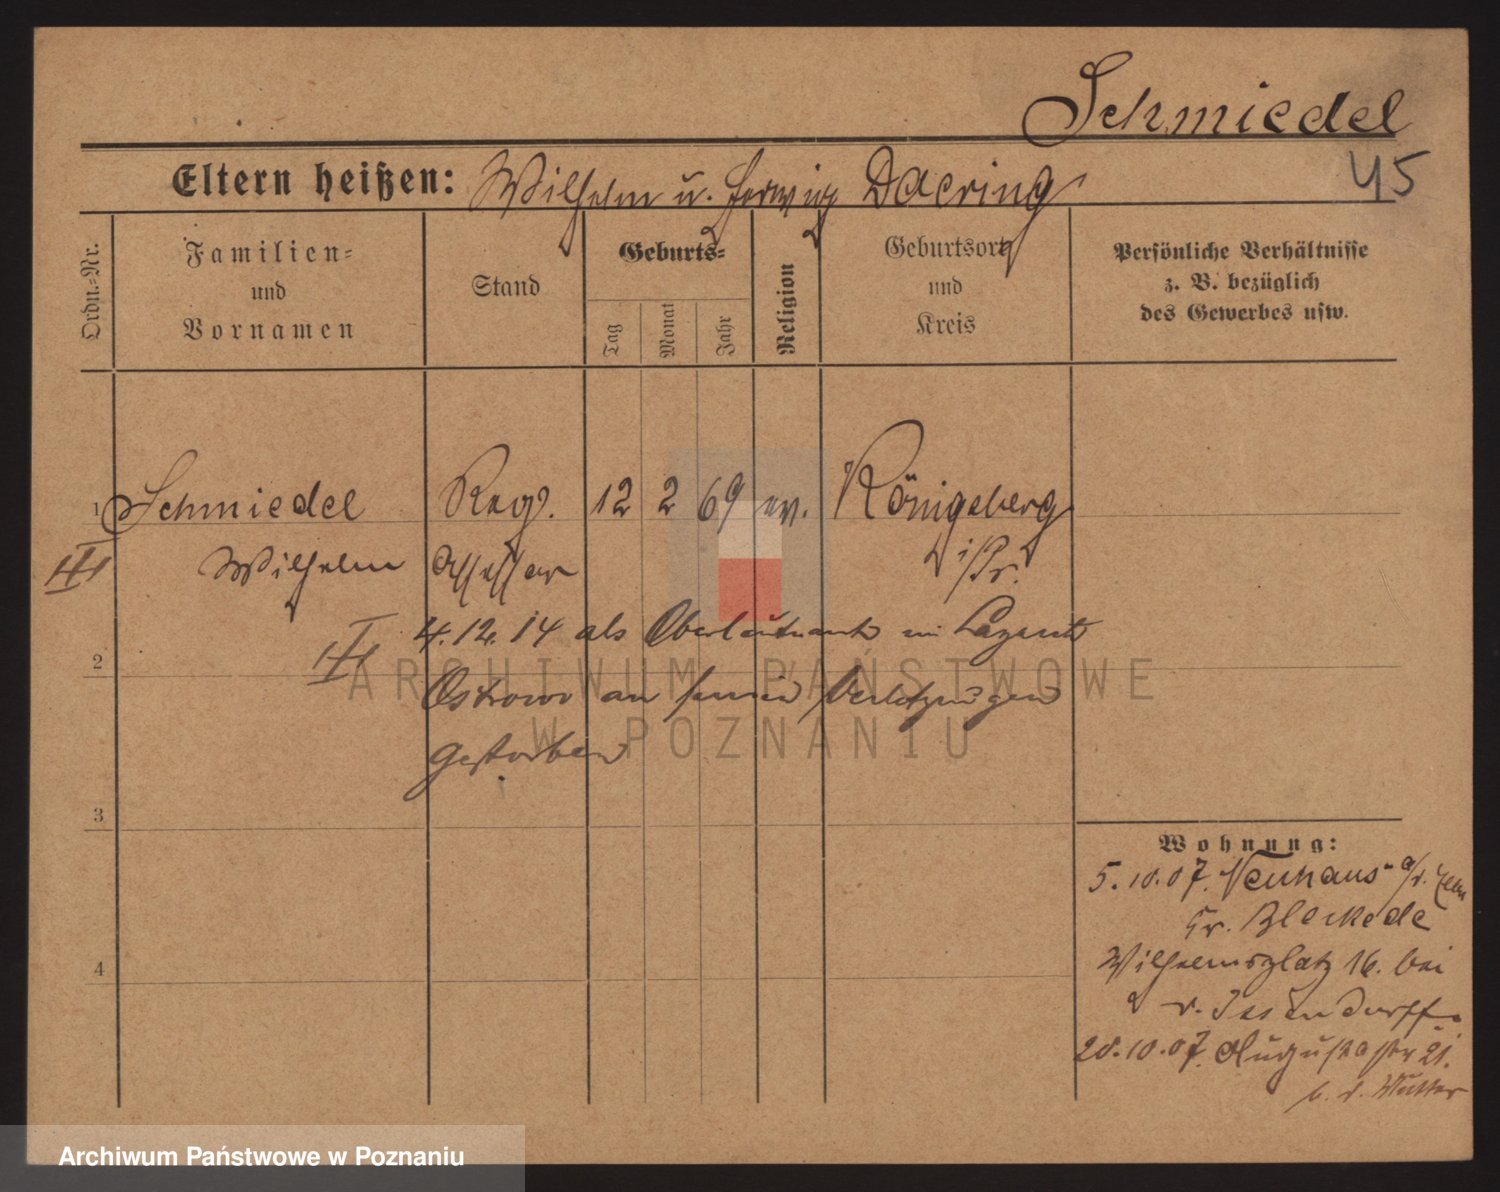 Schmiedel
45
Eltern heißen: Wilhelm u. Hedwig Daering
Ordn.-Nr.
Familien-
und
Vornamen
Stand
Geburts-
Tag
Monat
Jahr
Religion
Geburtsort
und
Kreis
Persönliche Verhältnisse
z. B. bezüglich
des Gewerbes usw.
1 Schmiedel Reg. 12 2 69 ev. Königsberg
Wilhelm Assessor i/Pr.
4.12.14 als Oberleutnant im Lazarett
2
Ostrowo an seinen Verletzungen
gestorben
3
4
Wohnung:
5.10.07. Neuhaus a/d. Elbe
Kr. Bleckede
Wilhelmsplatz 16. bei
v. Issendorff.
28.10.07. Augustastr 21.
b. d. Mutter
ARCHIWUM PAŃSTWOWE
W POZNANIU
Archiwum Państwowe w Poznaniu